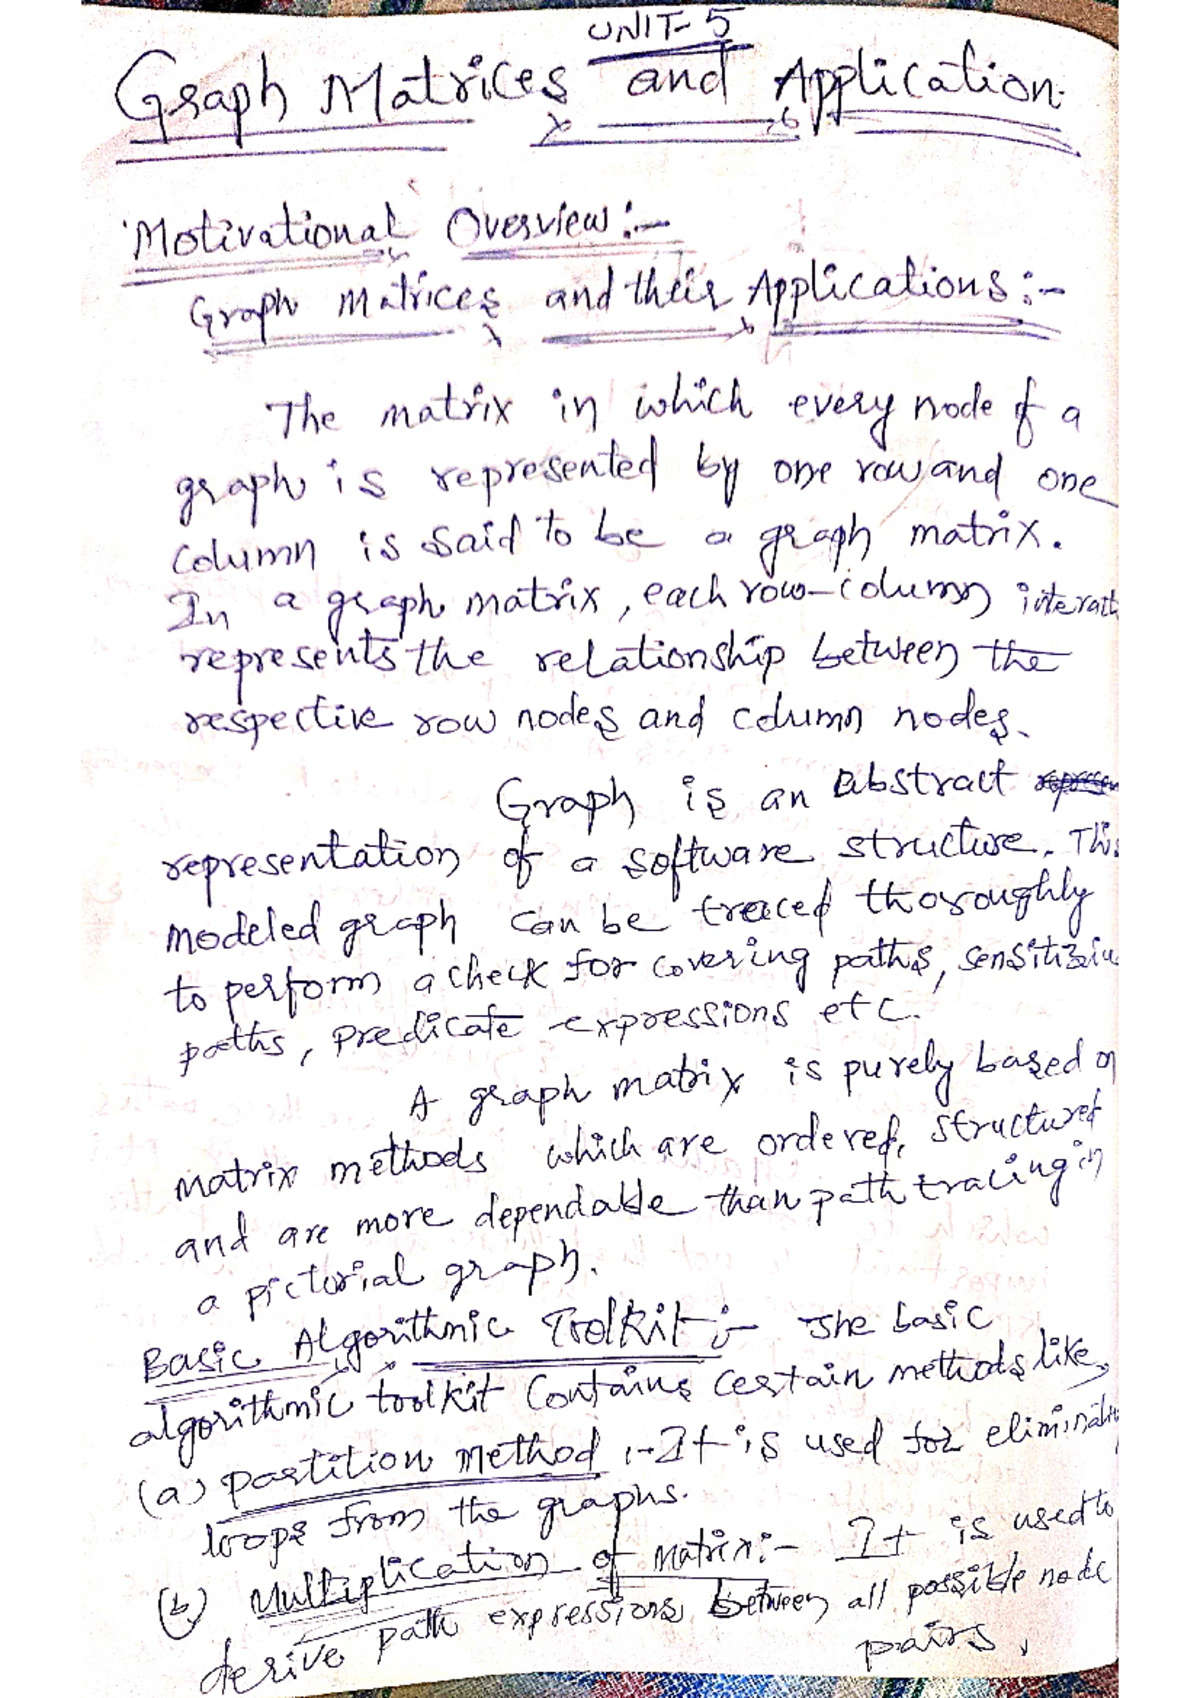 UNIT-5
Graph Matrices and Application.
Motivational Overview:-
Graph Matrices and their Applications:-
The matrix in which every node of a
graph is represented by one row and one
column is said to be a graph matrix.
In a graph matrix, each row-column
represents the relationship between the
respective row nodes and column nodes.
Graph is an abstract
representation of a software structure. This
modeled graph can be treaced thoroughly
to perform a check for covering paths,
paths, predicate expressions etc.
A graph matrix is purely based on
matrix methods which are ordered, structured
and are more dependable than path tracing in
a pictorial graph.
Basic Algorithmic Toolkit:- The basic
algorithmic toolkit Contains certain methods like,
(a) partition Method :- It is used for
loops from the graphs.
(b) Multiplication of Matrix:- It is used to
derive path expressions between all possible node
pairs.